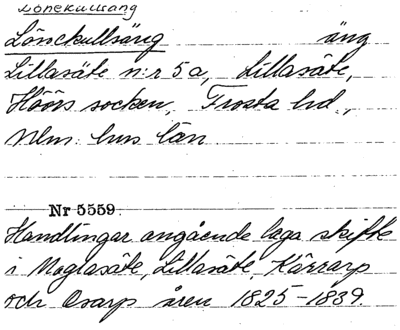 Lönekullsäng
Lönekullsäng äng
Lillasäte n:r 5a, Lillasäte,
Höörs socken, Frosta hd.,
Mlm. hus län
Nr 5559
Handlingar angående laga skifte
i Maglasäte, Lillasäte, Kärrarp
och Osarp åren 1825-1839.